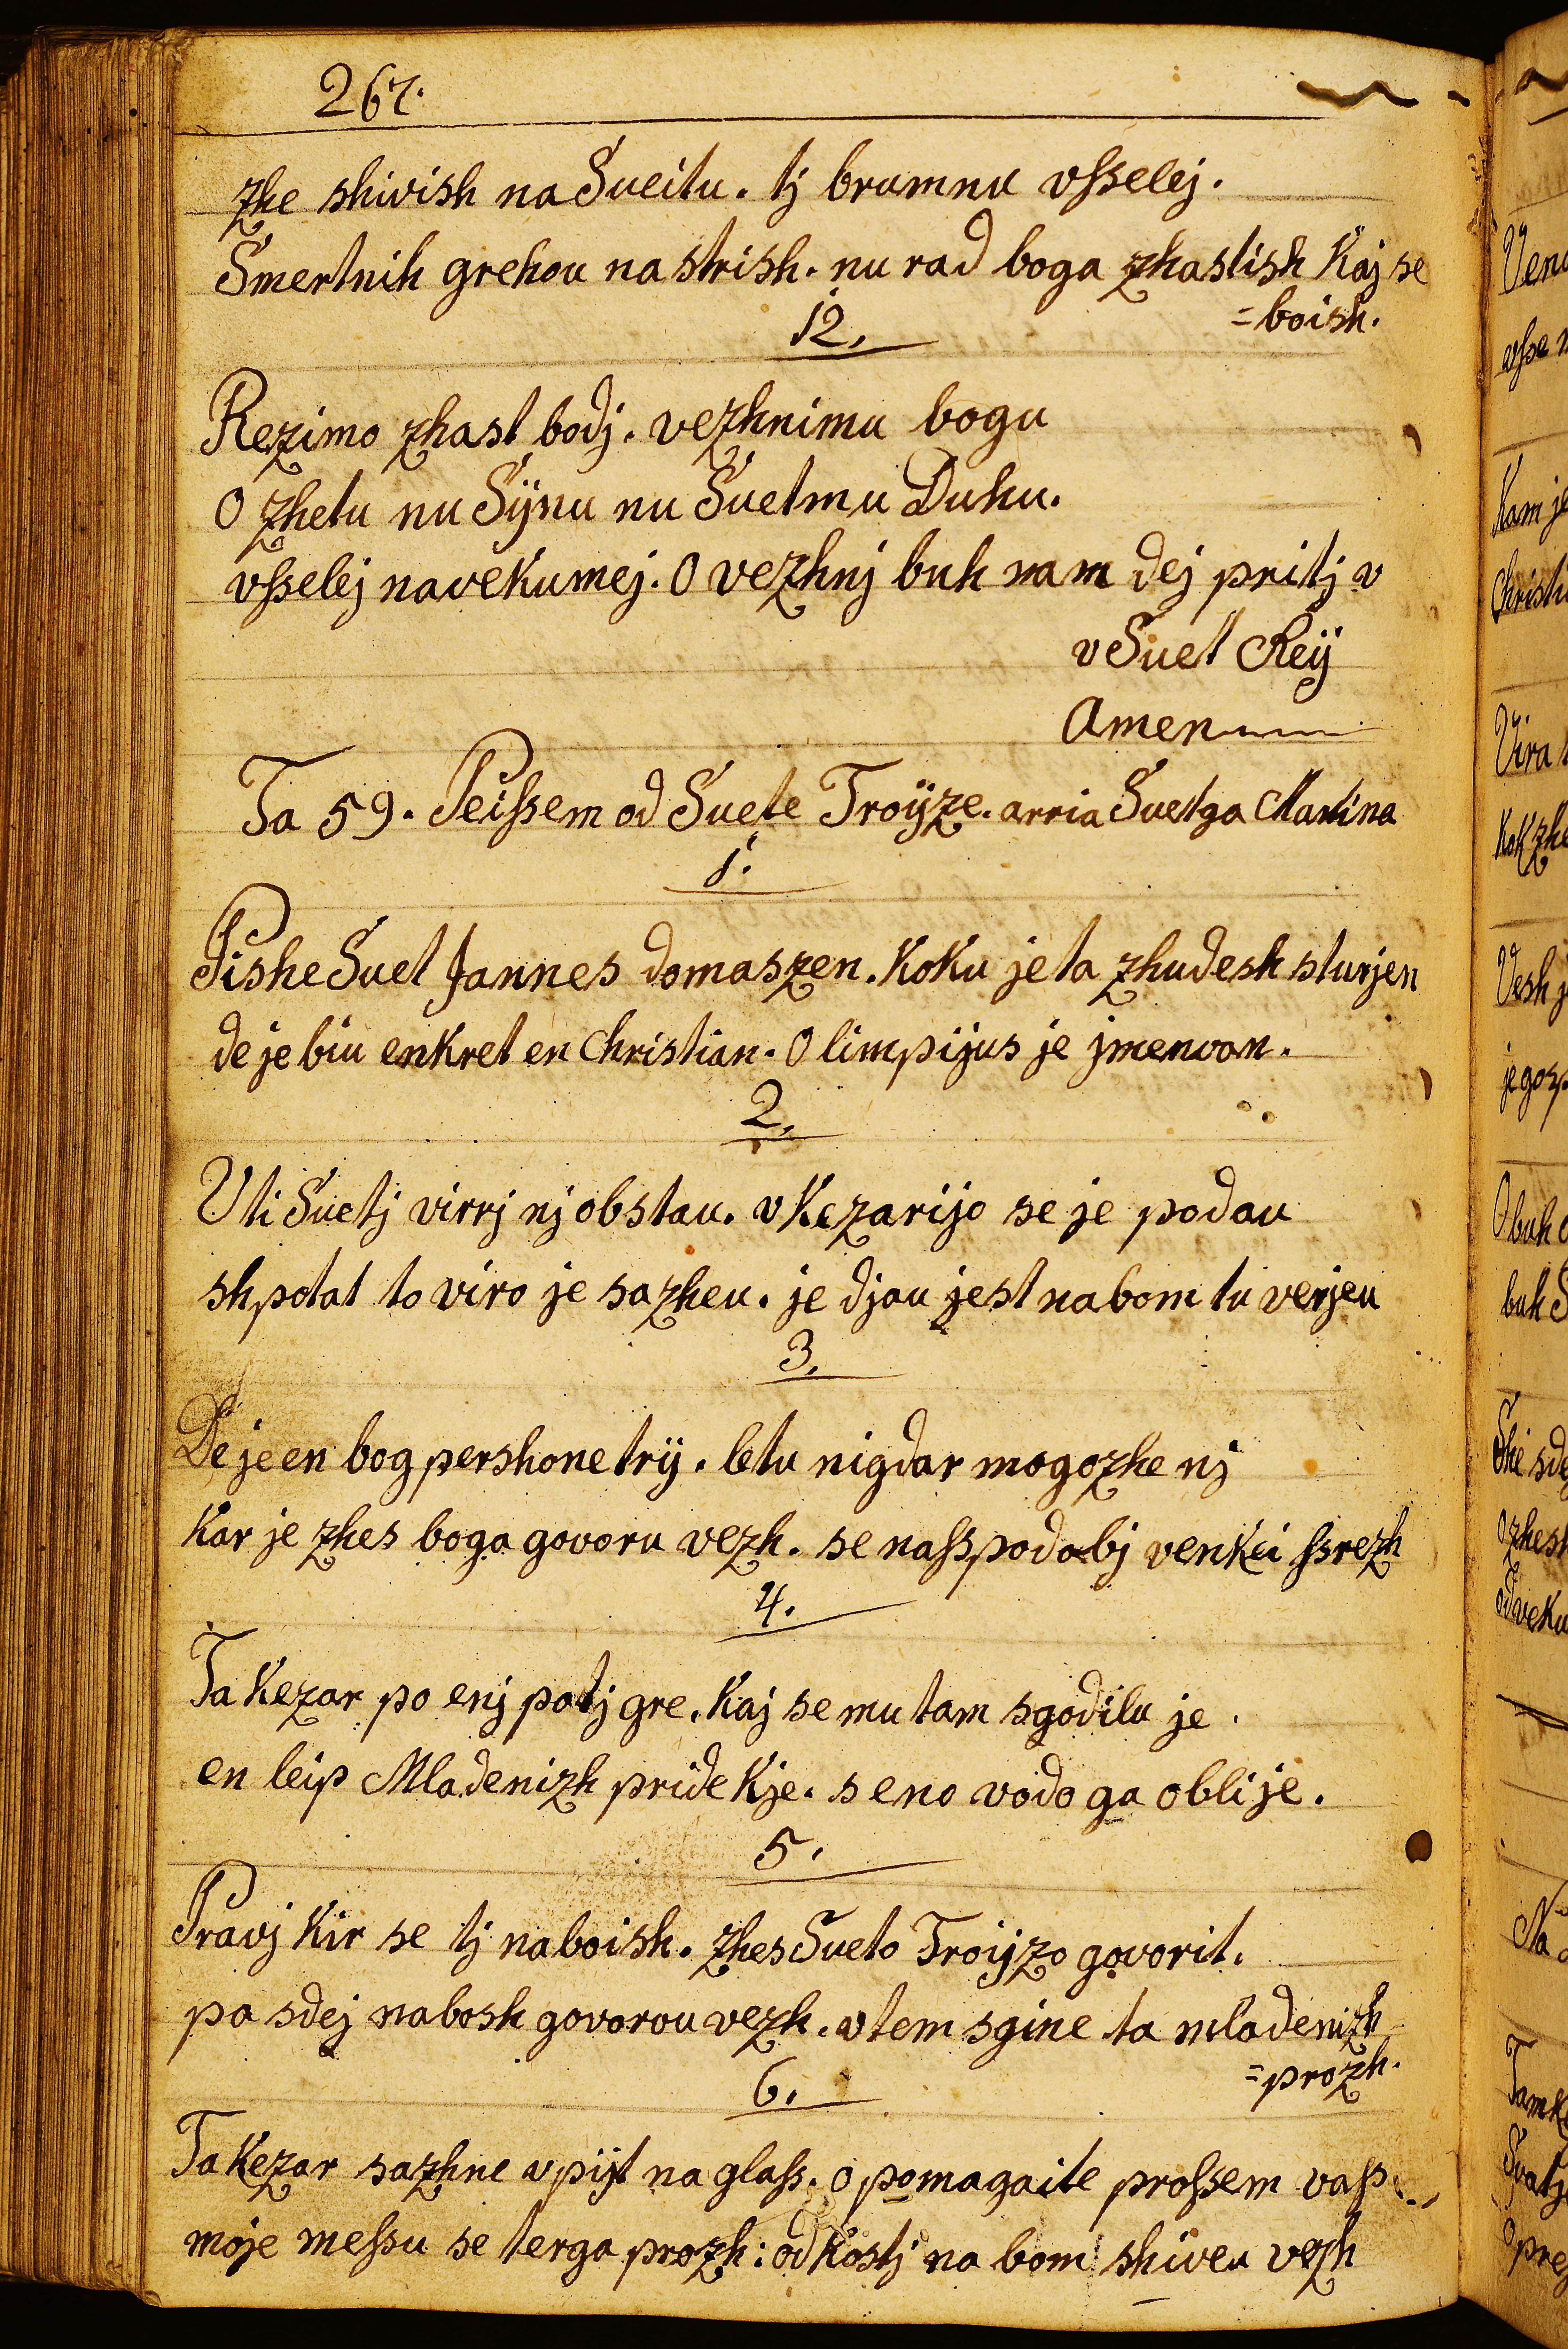 267.
zhe shivish na Sueitu. tj brumnu vsselej.
Smertnih grehou na strish. nu rad boga zhastish Kaj se
=boish.
12.
Rezimo zhast bodj. vezhnimu bogu
O zhetu nu Sÿnu nu Suetmu Duhu.
vsselej navekumej. O vezhnj buh nam dej pritj v
v Suet Reÿ
Amen
Ta 59. Peissem od Suete Troÿze. arria Suetga Martina
1.
Pishe Suet Jannes domaszen. Koku je ta zhudesh sturjen
de je biu enkret en Christian. Olimpijus je jmenvan.
2.
Uti Suetj virrj nj obstau. v Kezarijo se je podau
shpotat to viro je sazheu. je djau jest nabom tu verjeu
3.
De je en bog pershone trÿ. letu nigdar mogozhe nj
Kar je zhes boga govoru vezh. se nasspodobj venkei ssrezh
4.
Ta Kezar po enj potj gre. Kaj se mu tam sgodilu je.
en leip Mladenizh pride Kje. s eno vodo ga oblije.
5.
Pravj Kir se tj naboish. zhes Sueto Troijzo govorit.
pa sdej nabosh govorou vezh. v tem sgine ta mladenizh
=prozh.
6.
Ta Kezar sazhne vpijt na glass. o pomagaite prossem vass
moje messu se terga prozh: od Kostj na bom shiveu vezh